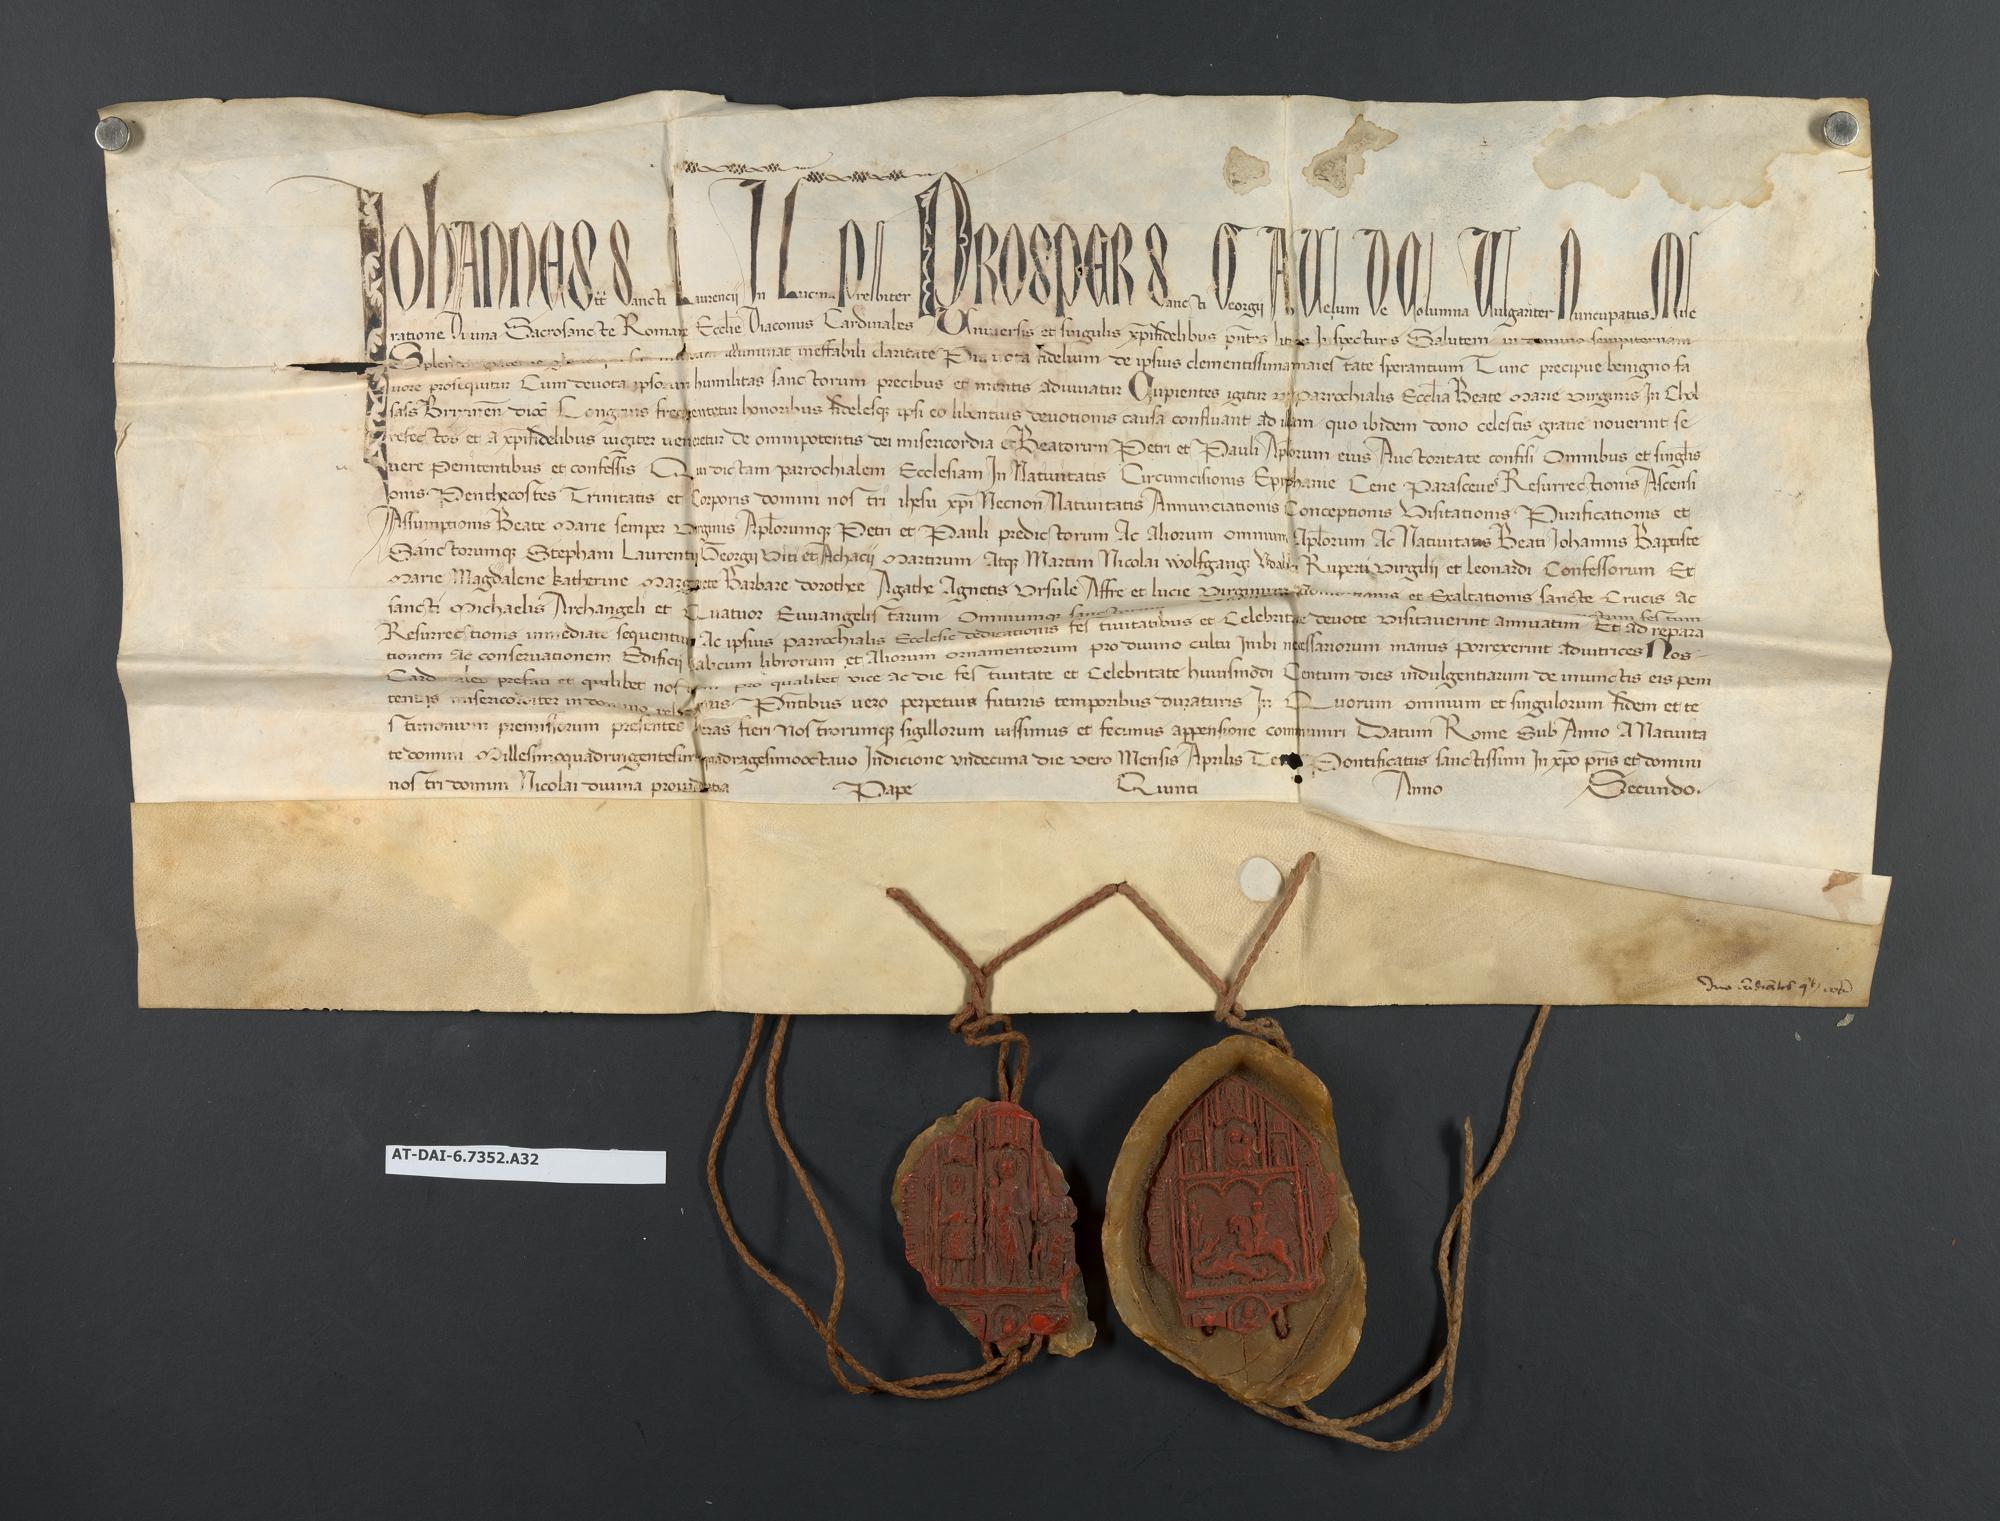 Johannes tt Sancti Laurencii In Lucina Presbiter Prosper Sancti Georgii Ad Velum De Columna Vulgariter Nuncupatus Mise
ratione Divina Sacrosancte Romane Ecclie Diaconus Cardinales Universis et singulis xpifidelibus pntes lras Inspecturis Salutem in domino sempiternam
Splendor paterne illuminat ineffabili claritate Pia vota fidelium de ipsius clementissima maiestate sperantium Tunc precipue benigno fa
vore prosequitur Cum devota ipsorum humilitas sanctorum precibus et meritis adiuvatur Cupientes igitur ut Parrochialis Ecclia Beate Marie virginis In Chol
sass Brixinen dioc Congruis frequentetur honoribus fidelesque ipsi eo libentius devotionis causa confluant ad illam quo ibidem dono celestis gratie noverint se
refectos et a xpifidelibus iugiter veneretur De omnipotentis dei misericordia et Beatorum Petri et Pauli Aplorum eius Auctoritate confisi Omnibus et singlis
vere Penitentibus et confessis Qui dictam parrochialem Ecclesiam In Nativitatis Circumcisionis Epiphanie Cene Parasceve Resurrectionis Ascensi
onis Penthecostes Trinitatis et Corporis domini nostri ihesu xpi Necnon Nativitatis Annunciationis Conceptionis Visitationis Purificationis et
Assumptionis Beate Marie semper virginis Aplorumque Petri et Pauli predictorum Ac Aliorum omnium Aplorum Ac Nativitatis Beati Johannis Baptiste
Sanctorumque Stephani Laurentii Georgii Viti et Achacii Martirum Atque Martini Nicolai Wolfgangi Ruperti Virgilii et Leonardi Confessorum Et
Marie Magdalene Katherine Margarete Barbare Dorothee Agathe Agnetis Ursule Affre et Lucie Virginum et Exaltationis sancte Crucis Ac
sancti Michaelis Archangeli et Quatuor Euuangelistarum Omniumque sanctorum
Resurrectionis immediate sequentium Ac ipsius parrochialis Ecclesie dedicationis festivitatibus et Celebritate devote visitaverint annuatim Et ad repara
tionem Ac conservationem Edificii calicum librorum et Aliorum ornamentorum pro divino cultu Inibi necessariorum manus porrexerint adiutrices Nos
Cardinales prefati et quilibet nostrum pro qualibet vice ac die festivitate et Celebritate huiusmodi Centum dies indulgentiarum de iniunctis eis peni
tentiis misericorditer in domino Pntibus vero perpetuis futuris temporibus duraturis In Quorum omnium et singulorum fidem et te
stimonium premissorum presentes lras fieri Nostrorumque sigillorum iussimus et fecimus appensione communiri Datum Rome Sub Anno A Nativita
te domini Millesimoquadringentesimoquadragesimooctavo Indicione undecima die vero Mensis Aprilis Pontificatus sanctissimi In xpo pris et domini
nostri domini Nicolai divina providentia Pape Quinti Anno Secundo.
AT-DAI-6.7352.A32